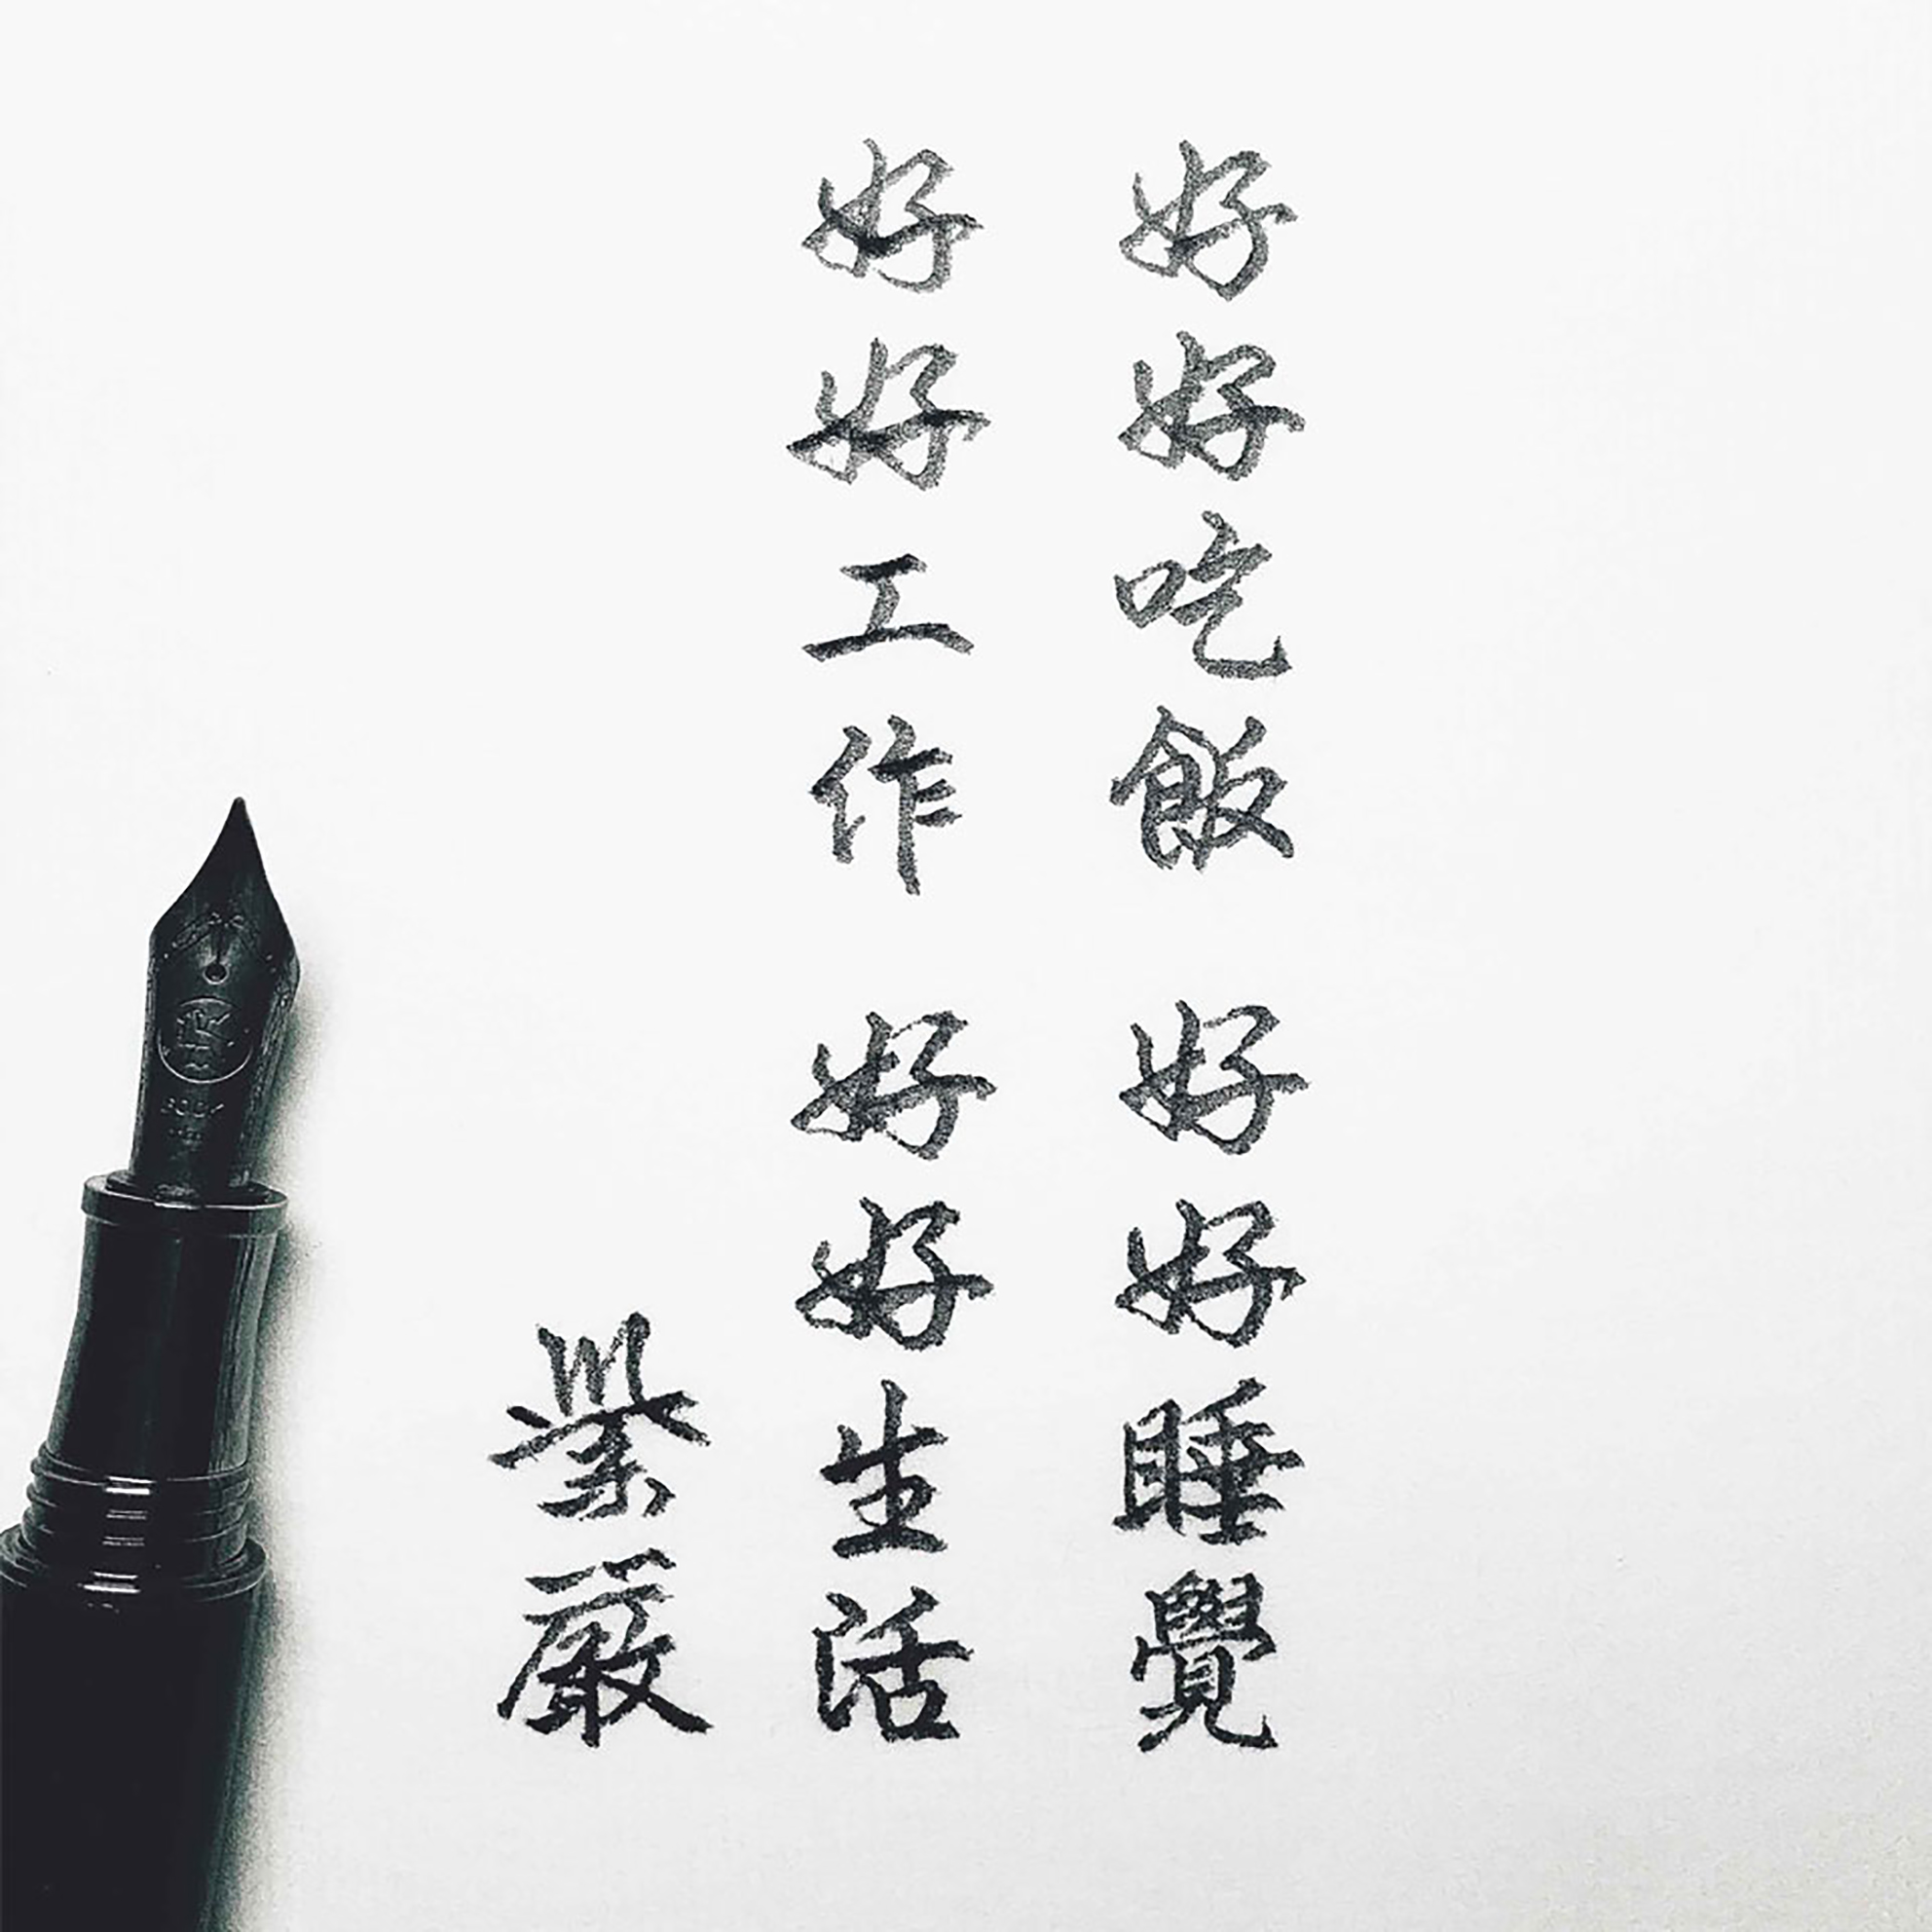 好好吃飯 好好睡覺
好好工作 好好生活
嚴